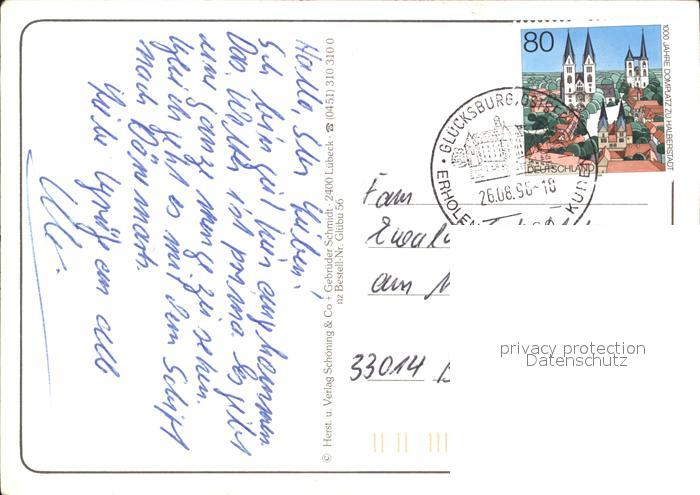 Hallo, Ihr Lieben!
Ich bin gut hier angekommen
Das Wetter ist prima. Es gibt
eine ganze menge zu sehen.
Gleich geht es mit dem Schiff
nach Dänemark.
Liebe Grüße an alle
© Herst. u. Verlag Schöning & Co + Gebrüder Schmidt · 2400 Lübeck · ☎ (0451) 310 310 0
nz Bestell-Nr. Glübu 56
80
DEUTSCHLAND
1000 JAHRE DOMPLATZ ZU HALBERSTADT
GLÜCKSBURG,
26.08.96-18
ERHOLEN
KUREN
Fam
am
33014
privacy protection
Datenschutz